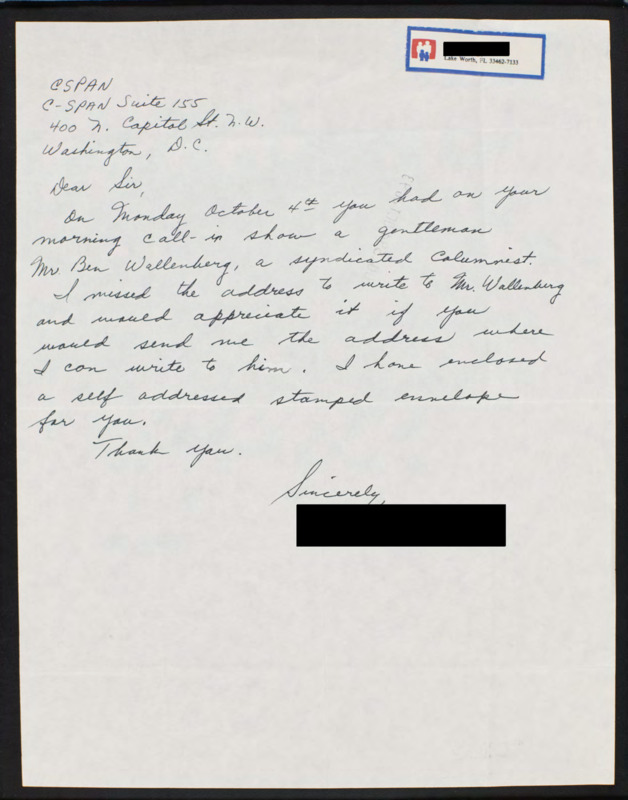 Lake Worth, FL 33462-7133
CSPAN
C-SPAN Suite 155
400 N. Capital St. N.W.
Washington, D.C.
Dear Sir,
On Monday October 4th you had on your
morning call-in show a gentleman
Mr. Ben Wallenberg, a syndicated columnist.
I missed the address to write to Mr. Wallenberg
and would appreciate it if you
would send me the address where
I can write to him. I have enclosed
a self addressed stamped envelope
for you.
Thank you.
Sincerely,